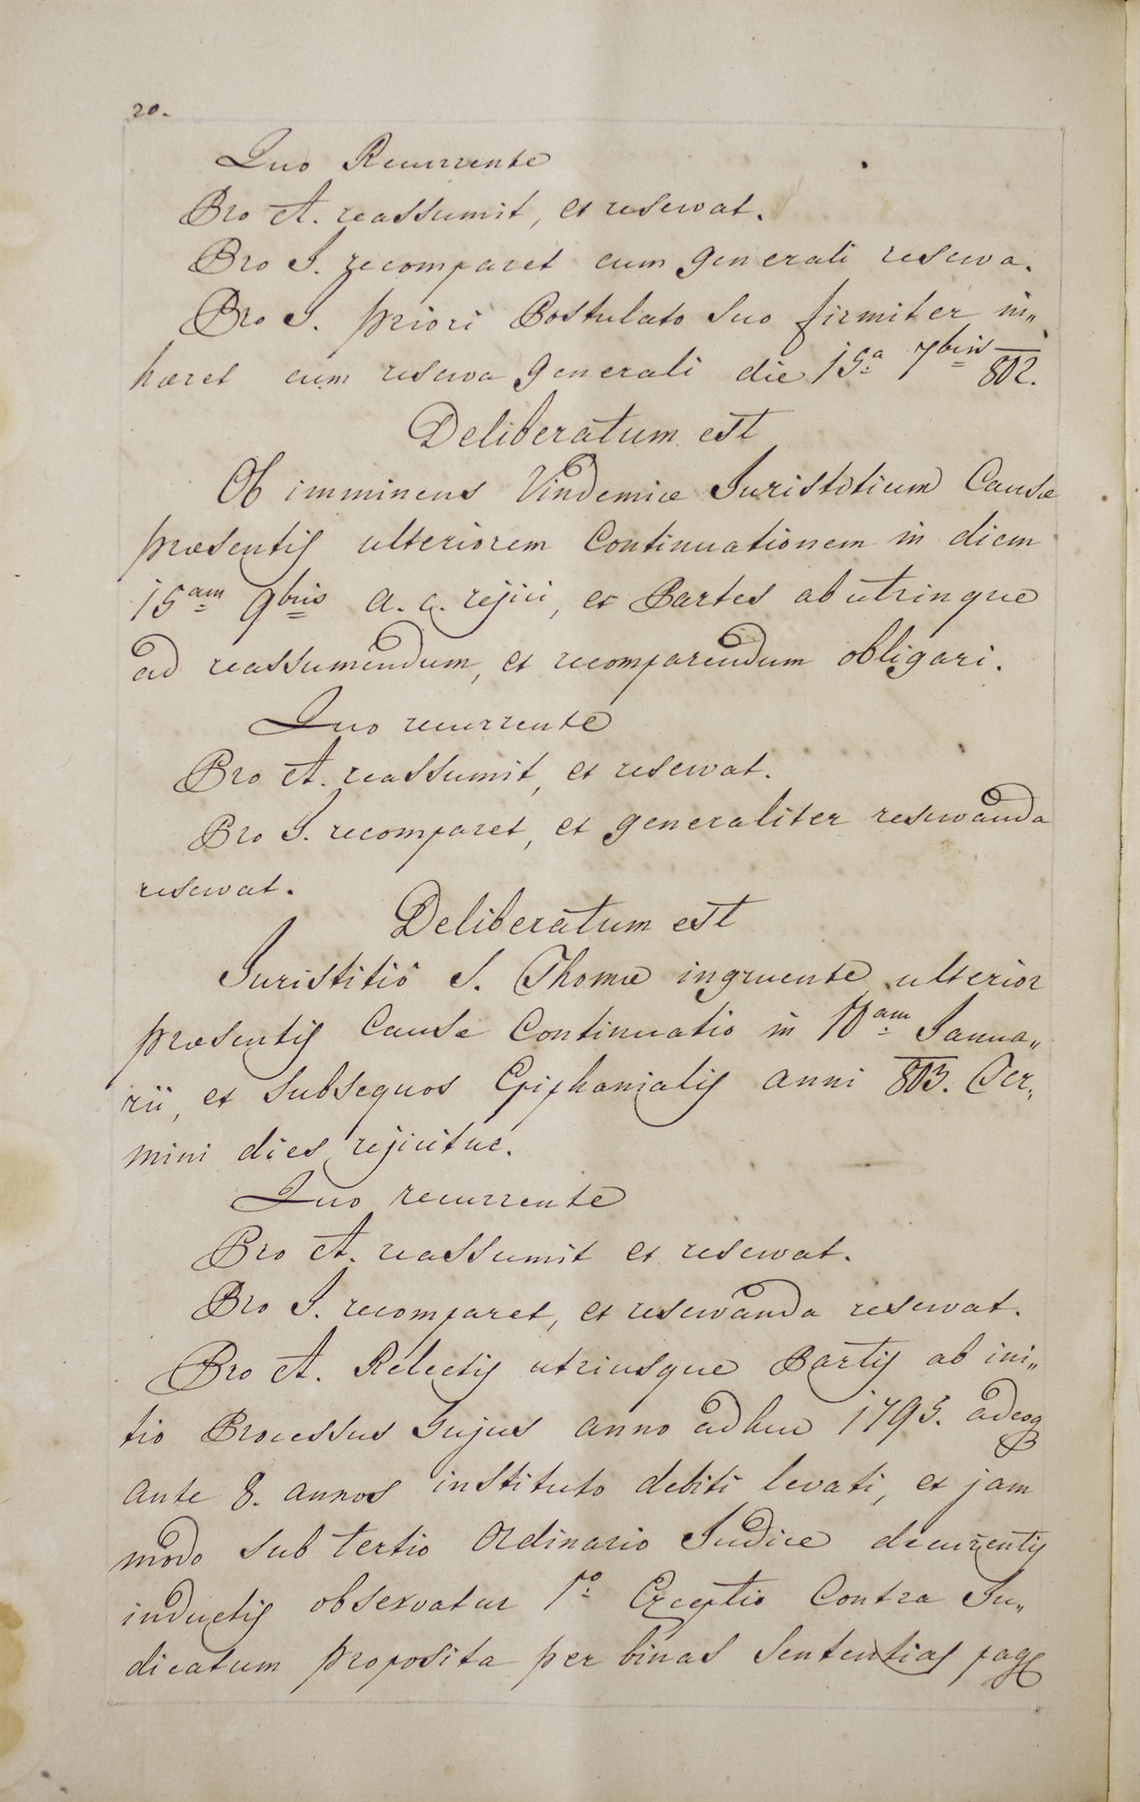 20.
Quo Recurrente
Pro A. reassumit, et reservat.
Pro I. recomparet cum generali reserva.
Pro I. priori Postulato suo firmiter in„
hæret cum reserva generali die 15a 7bris 802.
Deliberatum est
Ob imminens Vindemiæ Juristitium Causæ
præsentis ulteriorem Continuationem in diem
15am 9bris a. c. rejici, et Partes ab utrinque
ad reassumendum, et recomparendum obligari.
Quo recurrente
Pro A. reassumit, et reservat.
Pro I. recomparet, et generaliter reservanda
reservat.
Deliberatum est
Juristitio S. Thomæ ingruente ulterior
præsentis Causæ Continuatio in 10am Janua„
rii, et subsequos Epiphanialis anni 803. Ter„
mini dies rejicitur.
Quo recurrente
Pro A. reassumit et reservat.
Pro I. recomparet, et reservanda reservat.
Pro A. Relectis utriusque Partis ab ini„
tio Processus hujus anno adhuc 1795. adeoq
ante 8. annos instituto debiti levati, et jam
modo sub tertio Ordinario Judice decurrentis
inductis observatur 1o Exceptio Contra Ju„
dicatum proposita per binas Sententias pag